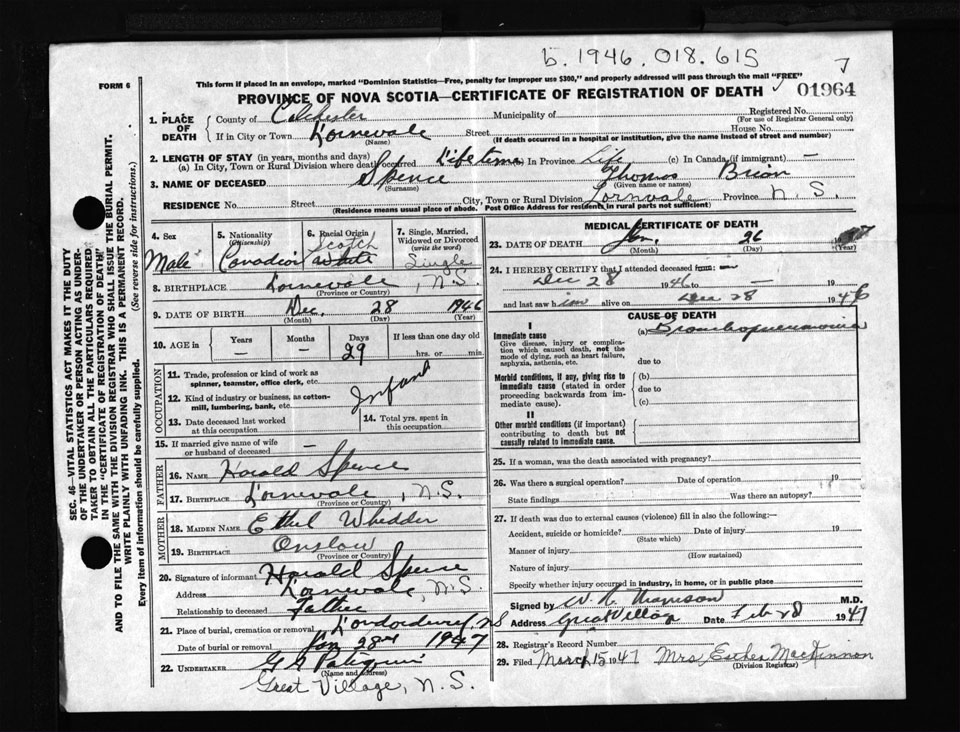 b. 1946. 018. 615
7
FORM 6
This form if placed in an envelope, marked "Dominion Statistics—Free, penalty for improper use $300," and properly addressed will pass through the mail "FREE"
PROVINCE OF NOVA SCOTIA—CERTIFICATE OF REGISTRATION OF DEATH 01964
1. PLACE OF DEATH County of Colchester Municipality of Registered No.
(For use of Registrar General only)
If in City or Town Lornevale Street House No.
(Name) (If death occurred in a hospital or institution, give the name instead of street and number)
2. LENGTH OF STAY (in years, months and days)
(a) In City, Town or Rural Division where death occurred Life time (b) In Province Life (c) In Canada (if immigrant) —
3. NAME OF DECEASED Spence Thomas Brian
(Surname) (Given name or names)
RESIDENCE No. Street City, Town or Rural Division Lornvale Province N.S.
(Residence means usual place of abode. Post Office Address for residents in rural parts not sufficient)
4. Sex Male
5. Nationality (Citizenship) Canadian
6. Racial Origin Scotch White
7. Single, Married, Widowed or Divorced (write the word) Single
8. BIRTHPLACE Lornevale, N.S.
(Province or Country)
9. DATE OF BIRTH Dec. 28 1946
(Month) (Day) (Year)
10. AGE in Years — Months — Days 29 If less than one day old hrs. or min.
OCCUPATION
11. Trade, profession or kind of work as spinner, teamster, office clerk, etc.
12. Kind of industry or business, as cotton-mill, lumbering, bank, etc. Infant
13. Date deceased last worked at this occupation
14. Total yrs. spent in this occupation
15. If married give name of wife or husband of deceased —
FATHER
16. NAME Harold Spence
17. BIRTHPLACE Lornevale, N.S.
MOTHER
18. MAIDEN NAME Ethel Whidden
19. BIRTHPLACE Onslow
(Province or Country)
20. Signature of informant Harold Spence
Address Lornevale, N.S.
Relationship to deceased Father
21. Place of burial, cremation or removal N.S
Date of burial or removal Jan 28 1947
22. UNDERTAKER
(Name and address)
Great Village, N.S.
MEDICAL CERTIFICATE OF DEATH
23. DATE OF DEATH Jan. 26
(Month) (Day)
24. I HEREBY CERTIFY that I attended deceased from:
Dec 28 1946 to — 19
and last saw him alive on Dec 28 1946
CAUSE OF DEATH
I
Immediate cause (a) Bronchopneumonia
Give disease, injury or complication which caused death, not the mode of dying, such as heart failure, asphyxia, asthenia, etc. due to
Morbid conditions, if any, giving rise to immediate cause (stated in order proceeding backwards from immediate cause). (b)
due to
(c)
II
Other morbid conditions (if important) contributing to death but not causally related to immediate cause.
25. If a woman, was the death associated with pregnancy?
26. Was there a surgical operation? Date of operation 19
State findings Was there an autopsy?
27. If death was due to external causes (violence) fill in also the following:—
Accident, suicide or homicide? Date of injury 19
(State which)
Manner of injury
(How sustained)
Nature of injury
Specify whether injury occurred in industry, in home, or in public place
Signed by M.D.
Address Great Village Date Feb 28 1947
28. Registrar's Record Number
29. Filed March 15 1947 Mrs. Esther MacKinnon
(Division Registrar)
SEC. 46—VITAL STATISTICS ACT MAKES IT THE DUTY
OF THE UNDERTAKER OR PERSON ACTING AS UNDER-
TAKER TO OBTAIN ALL THE PARTICULARS REQUIRED
IN THE "CERTIFICATE OF REGISTRATION OF DEATH"
AND TO FILE THE SAME WITH THE DIVISION REGISTRAR WHO SHALL ISSUE THE BURIAL PERMIT.
WRITE PLAINLY WITH UNFADING INK. THIS IS A PERMANENT RECORD.
Every item of information should be carefully supplied. (See reverse side for instructions.)